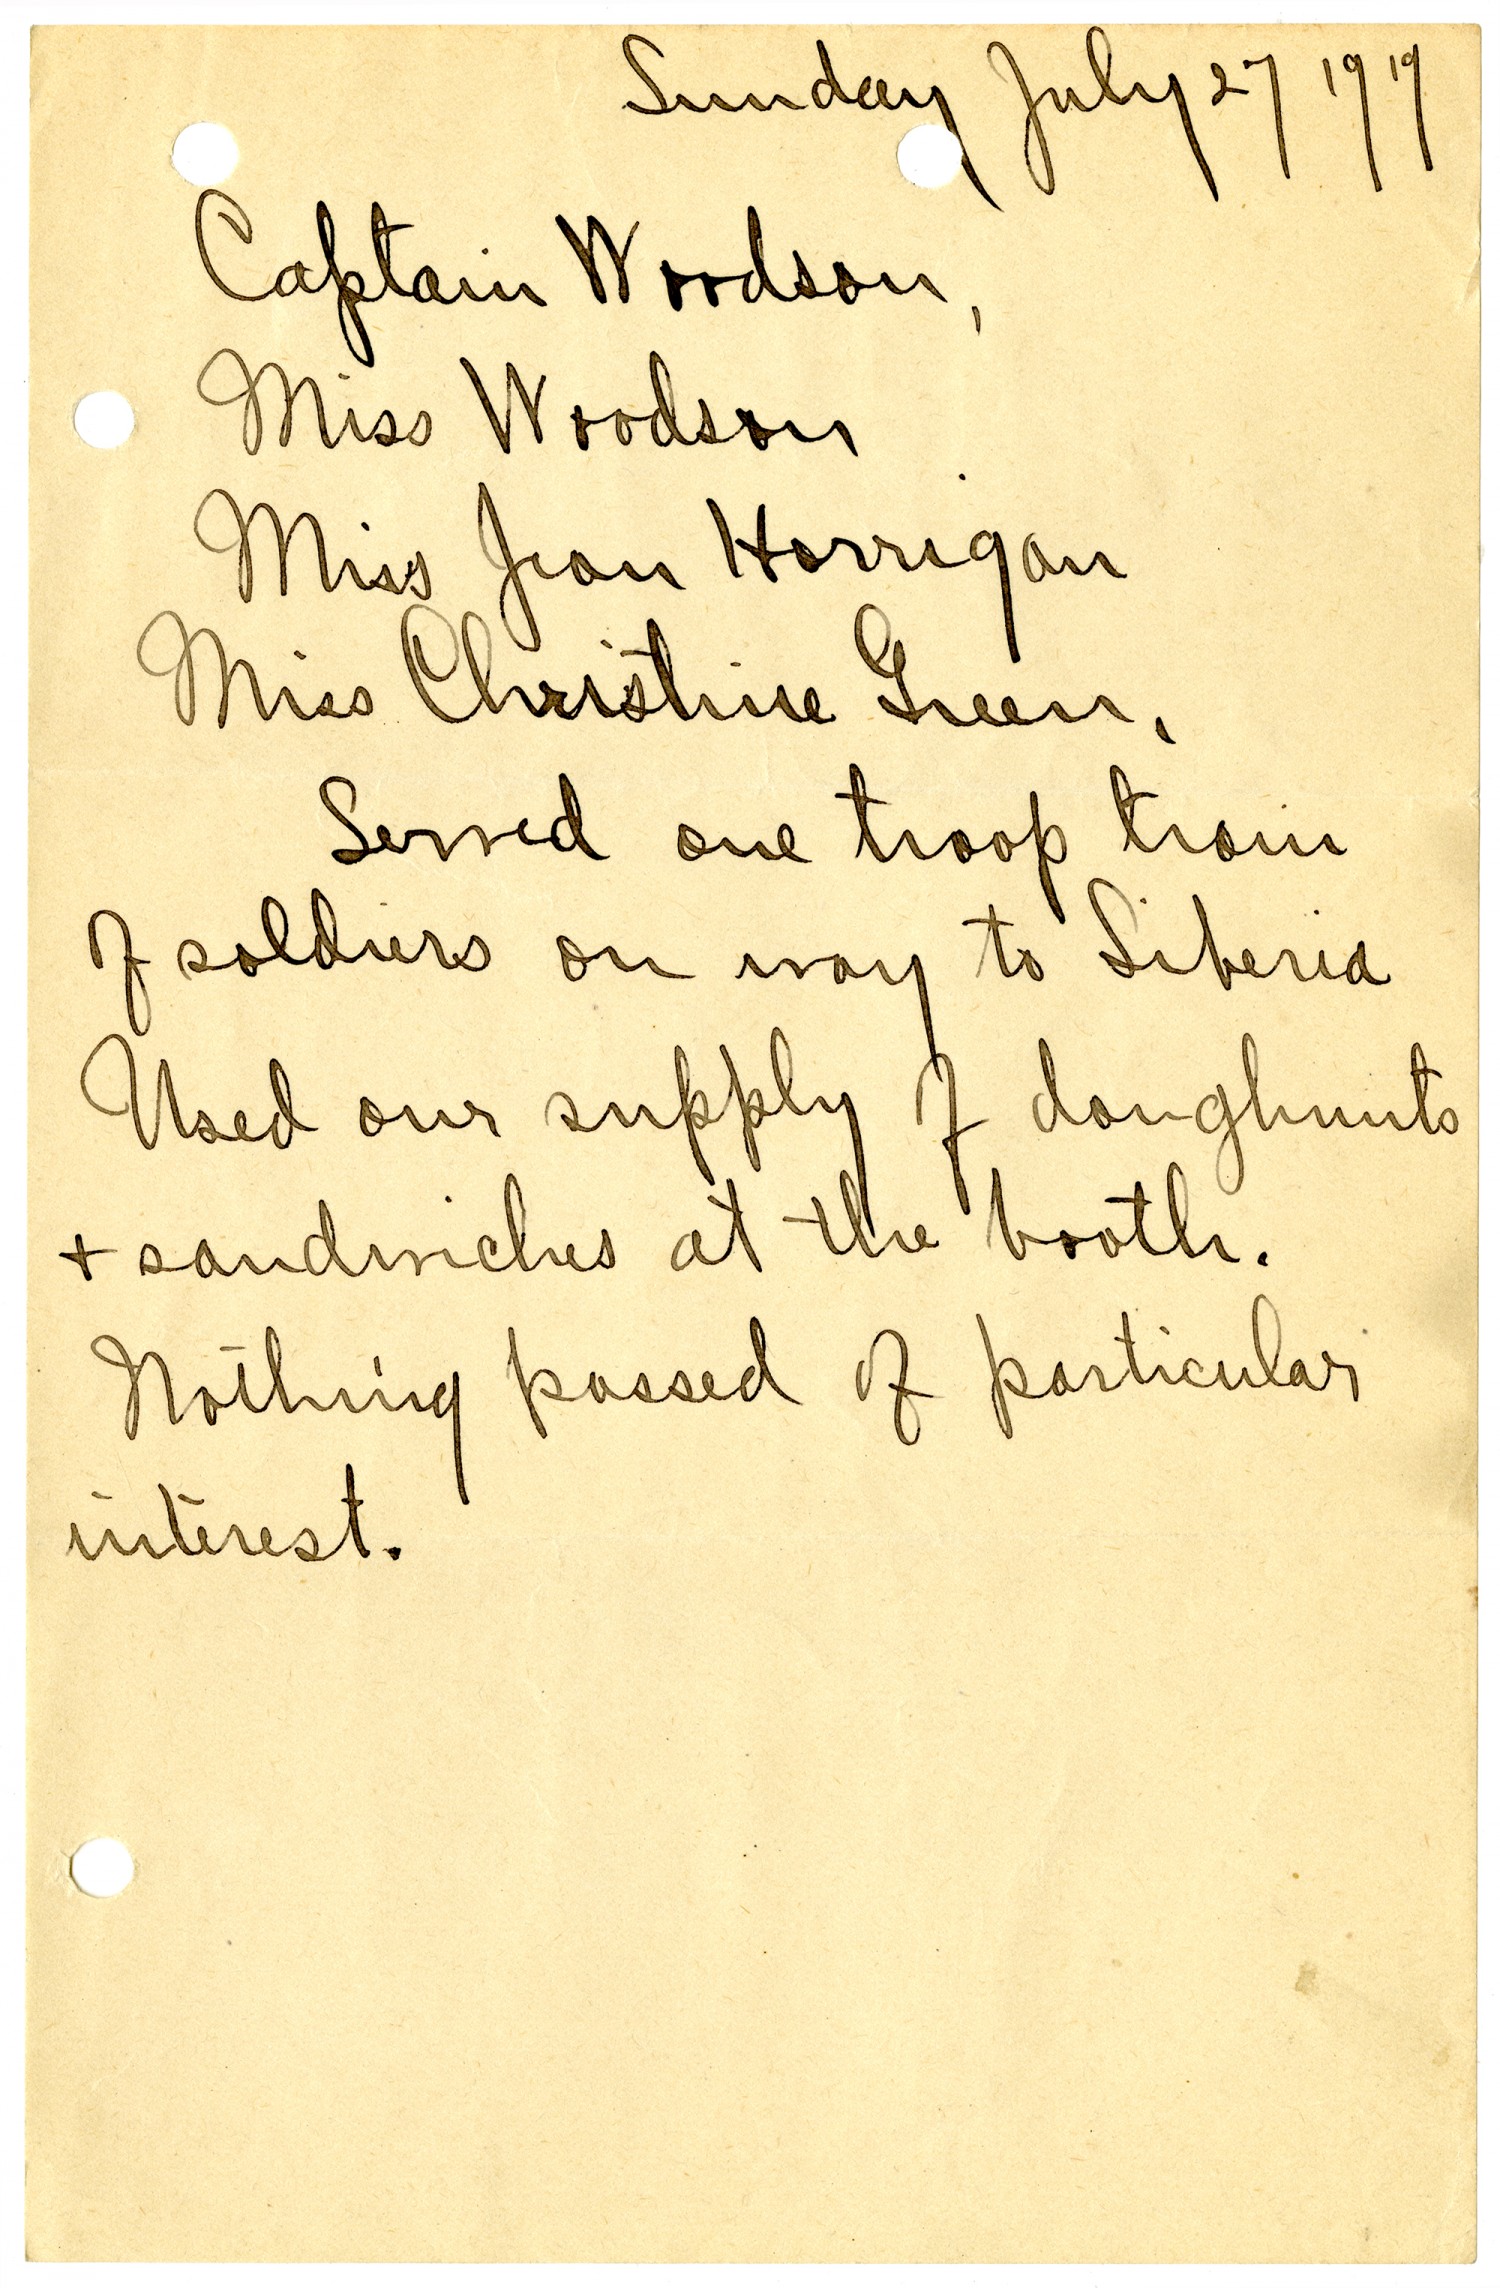 Sunday July 27 1919
Captain Woodson,
Miss Woodson
Miss Jean Horrigan
Miss Christine Green,
Served one troop train
of soldiers on way to Siberia
Used our supply of doughnuts
+ sandwiches at the booth.
Nothing passed of particular
interest.